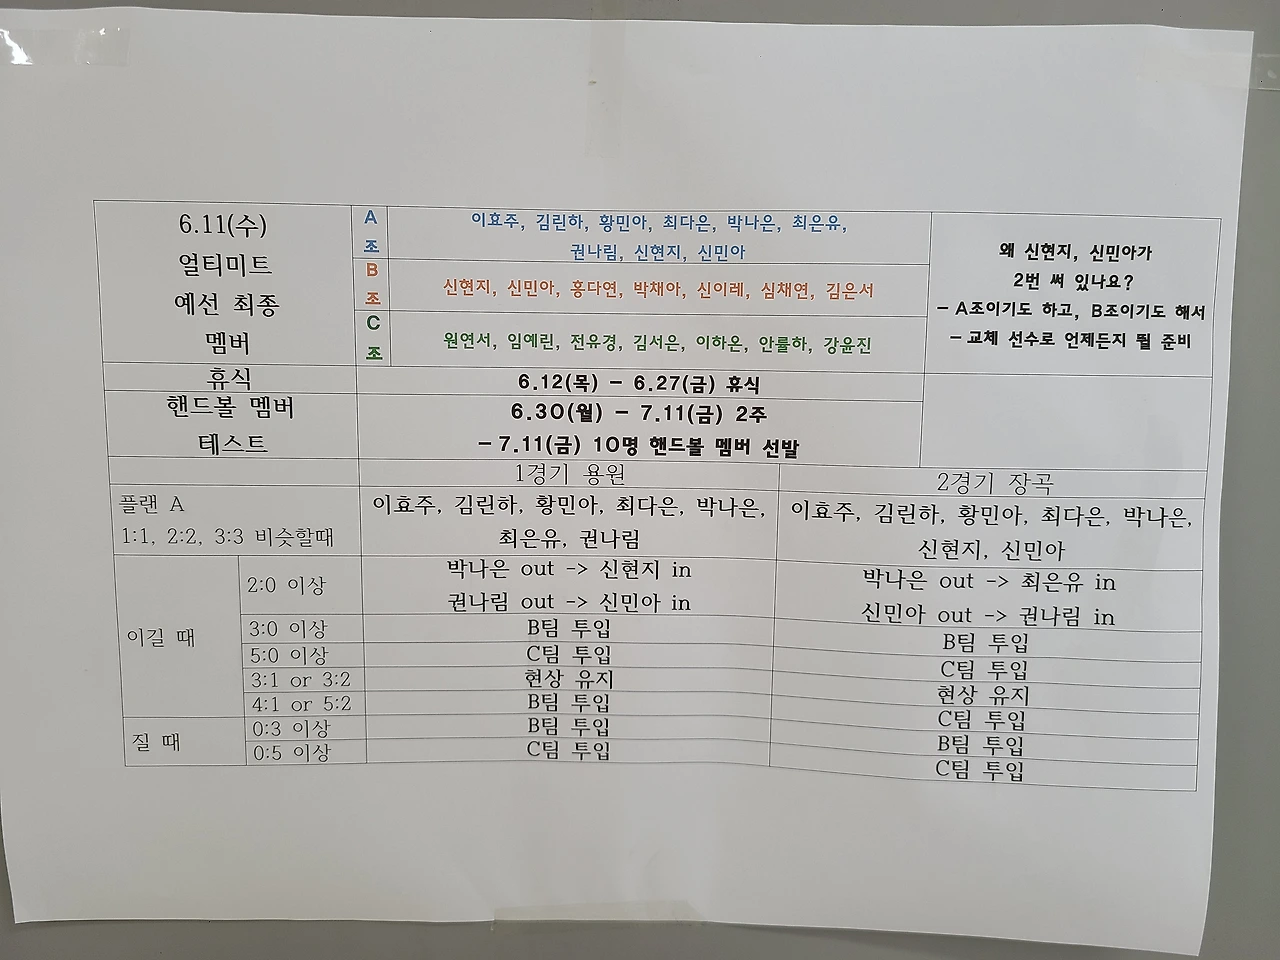 6.11(수)
얼티미트
예선 최종
멤버
A
조
이효주, 김린하, 황민아, 최다은, 박나은, 최은유,
권나림, 신현지, 신민아
B
조
신현지, 신민아, 홍다연, 박채아, 신이레, 심채연, 김은서
C
조
원연서, 임예린, 전유경, 김서은, 이하온, 안률하, 강윤진
왜 신현지, 신민아가
2번 써 있나요?
- A조이기도 하고, B조이기도 해서
- 교체 선수로 언제든지 뛸 준비
휴식
6.12(목) - 6.27(금) 휴식
핸드볼 멤버
테스트
6.30(월) - 7.11(금) 2주
- 7.11(금) 10명 핸드볼 멤버 선발
1경기 용원
2경기 장곡
플랜 A
1:1, 2:2, 3:3 비슷할때
이효주, 김린하, 황민아, 최다은, 박나은,
최은유, 권나림
이효주, 김린하, 황민아, 최다은, 박나은,
신현지, 신민아
이길 때
2:0 이상
박나은 out -> 신현지 in
권나림 out -> 신민아 in
박나은 out -> 최은유 in
신민아 out -> 권나림 in
3:0 이상
B팀 투입
B팀 투입
5:0 이상
C팀 투입
C팀 투입
3:1 or 3:2
현상 유지
현상 유지
4:1 or 5:2
B팀 투입
C팀 투입
질 때
0:3 이상
B팀 투입
B팀 투입
0:5 이상
C팀 투입
C팀 투입